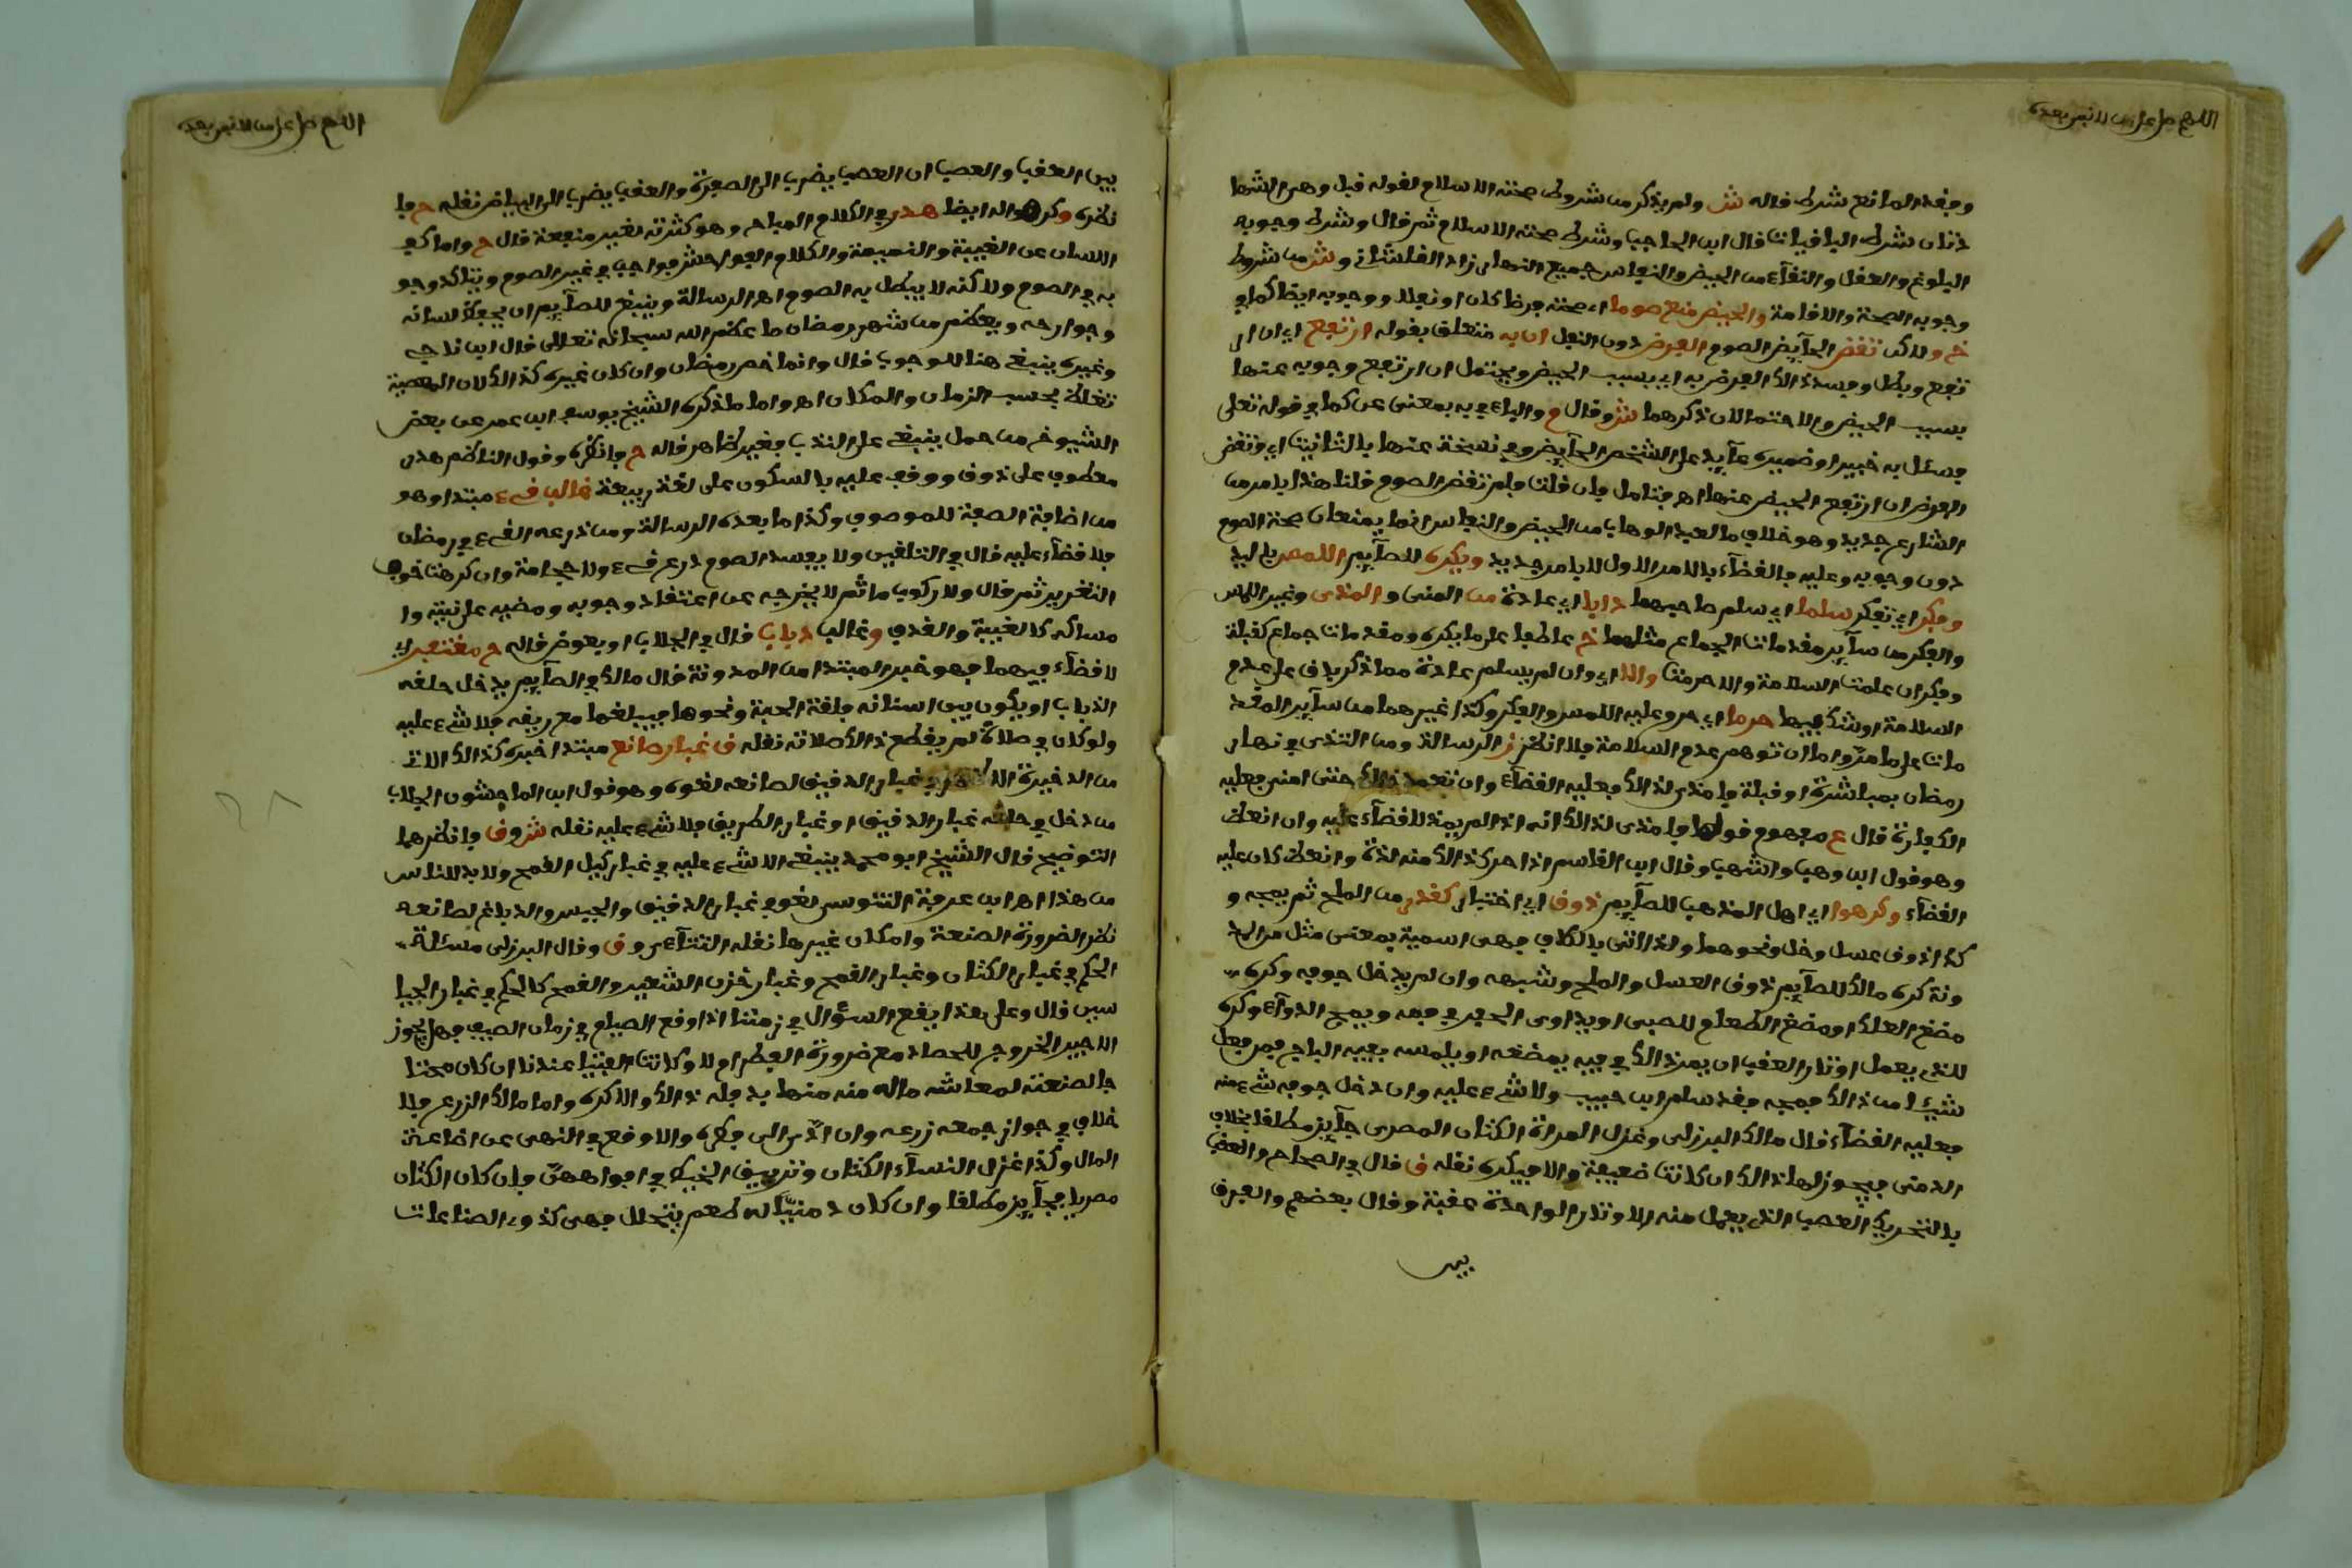 اللهم صل على من لا نبي بعده
وفقد المانع شرط قاله ش ولم يذكر من شروط صحته الاسلام لقوله قبل وهى الشها
دتان شرط الباقيات قال ابن الحاجب وشرط صحته الاسلام ثم قال وشرط وجوبه
البلوغ والعقل والنقاء من الحيض والنفاس جميع النهار زاد القلشاني و ش من شروط
وجوبه الصحة والاقامة والحيض منع صوما اي صحته فرضا كان او نفلا ووجوبه ايضا كما في
خ ولاكن تقضي الحآيض الصوم الفرض دون النفل ان به متعلق بقوله ارتفع اي ان ار
تفع وبطل وفسد ذالك الفرض به اي بسبب الحيض ويحتمل ان ارتفع وجوبه عنها
بسبب الحيض والاحتمالان ذكرهما ش وقال م والباء في به بمعنى عن كما في قوله تعلى
فسئل به خبيرا وضميره عآيد على الشخص الحآيض وفي نسخة عنها بالتانيث اي وتقضي
الفرض ان ارتفع الحيض عنها اهـ فتامل فان قلت فلم تقضي الصوم قلنا هذا بامر من
الشارع جديد وهو خلاف ما لعبد الوهاب من الحيض والنفاس انما يمنعان صحة الصوم
دون وجوبه وعليه فالقضآء بالامر الاول لا بامر جديد ويكره للصآيم اللمس باليد
وفكر اي تفكر سلما اي سلم صاحبهما دابا اي عادة من المنى والمذي وغير اللمس
والفكر من سآير مقدمات الجماع مثلهما خ عاطفا على ما يكره ومقدمات جماع كقبلة
وفكر ان علمت السلامة والا حرمت والا اي وان لم يسلم عادة مما ذكر بان على عدم
السلامة او شك فيها حرما اي حرم عليه اللمس والفكر وكذا غيرهما من سآير المقد
مات على ما مر واما ان توهم عدم السلامة فلا انظر ز الرسالة ومن التذى في نهار
رمضان بمباشرة او قبلة فامذى لذالك فعليه القضآء وان تعمد ذالك حتى امنى فعليه
الكفارة قال ع مفهوم قولها فامذى لذالك انه اذا لم يمذ لا قضآء عليه وان انعظ
وهو قول ابن وهب واشهب وقال ابن القاسم اذا حرك ذالك منه لذة وانعظ كان عليه
القضآء وكرهوا اي اهل المذهب للصآيم ذوق اي اختبار كقدر من الملح ثم يمجه و
كذا ذوق عسل وخل ونحوهما ولذا اتى بالكاف فهى اسمية بمعنى مثل من المد
ونة كره مالك للصآيم ذوق العسل والملح وشبهه وان لم يدخل جوفه وكره
مضغ العلك او مضغ الطعام للصبى او يداوى الحفر في فمه ويمج الدوآء وكره
للذي يعمل اوتار العقب ان يمر ذالك في فيه يمضغه او يلمسه بفيه الباجي فمن فعل
شيئا من ذالك فمجه فقد سلم ابن حبيب ولا شيء عليه وان دخل جوفه شيء منه
فعليه القضآء قال مالك البرزلى وغزل المراة الكتان المصرى جآيز مطلقا بخلاف
الدمنى فيجوز لها ذالك ان كانت ضعيفة والا فيكره نقله ق قال في الصحاح والعقب
بالتحريك العصب الذي يعمل منه الاوتار الواحدة عقبة وقال بعضهم والفرق
بين
اللهم صل على من لا نبي بعده
بين العقب والعصب ان العصب يضرب الى الصفرة والعقب يضرب الى البياض نقله ح فا
نظره وكرهوا له ايضا هدر في الكلام المباح وهو كثرته لغير منفعة قال ح واما كف
اللسان عن الغيبة والنميمة والكلام الفواحش فواجب في غير الصوم ويتاكد وجو
به في الصوم ولاكنه لا يبطل به الصوم اهـ الرسالة وينبغي للصآيم ان يحفظ لسانه
وجوارحه ويعظم من شهر رمضان ما عظم الله سبحانه تعالى قال ابن ناجي
وغيره ينبغي هنا للوجوب قال وانما خص رمضان وان كان غيره كذالك لان المعصية
تغلظ بحسب الزمان والمكان اهـ واما ما ذكره الشيخ يوسف ابن عمر عن بعض
الشيوخ من حمل ينبغي على الندب فغير ظاهر قاله ح فانظره وقول الناظم هدر
معطوف على ذوق ووقف عليه بالسكون على لغة ربيعة غالب قيء مبتدا وهو
من اضافة الصفة للموصوف وكذا ما بعده الرسالة ومن ذرعه القيء في رمضان
فلا قضآء عليه قال في التلقين ولا يفسد الصوم ذرع قيء ولا حجامة وان كرهنا خوف
التغرير ثم قال ولا ركوب ماثم لا يخرجه عن اعتقاد وجوبه ومضيه على نيته وا
مساكه كالغيبة والقذف وغالب ذباب قال في الجلاب او بعوض قاله ح مغتفر اي
لا قضآء فيهما فهو خبر المبتدا من المدونة قال مالك في الصآيم يدخل حلقه
الذباب او يكون بين اسنانه فلقة الحبة ونحوها فيبلغها مع ريقه فلا شيء عليه
ولو كان في صلاة لم يقطع ذالك صلاته نقله ق غبار صانع مبتدا خبره كذالك الاتي
من الذخيرة غبار الدقيق لصانعه لغوه وهو قول ابن الماجشون الجلاب
من دخل في حلقه غبار الدقيق او غبار الطريق فلا شيء عليه نقله ش و ق وانظرهما
التوضيح قال الشيخ ابو محمد ينبغي الا شيء عليه في غبار كيل القمح ولا بد للناس
من هذا اهـ ابن عرفة التونسي لغو في غبار الدقيق والجبس والدباغ لصانعه
نظر الضرورة الصنعة وامكان غيرها نقله التتآءي و ق وقال البرزلى مسئلة
الحكم في غبار الكتان وغبار القمح وغبار خزن الشعير والقمح كالحكم في غبار الجبا
سين قال وعلى هذا يقع السؤال في زمننا اذا وقع الصيام في زمان الصيف فهل يجوز
الاجير الخروج للحصاد مع ضرورة الفطر ام لا وكانت الفتيا عندنا ان كان محتا
جا لصنعته لمعاشه ماله منه منها بد فله ذالك والا كره واما مالك الزرع فلا
خلاف في جواز جمعه زرعه وان ادى الى فطره والا وقع في النهى عن اضاعة
المال وكذا غزل النسآء الكتان وترييق الخيط في افواههن فان كان الكتان
مصريا فجآيز مطلقا وان كان دمنيا له طعم يتحلل فهى كذوى الصناعات